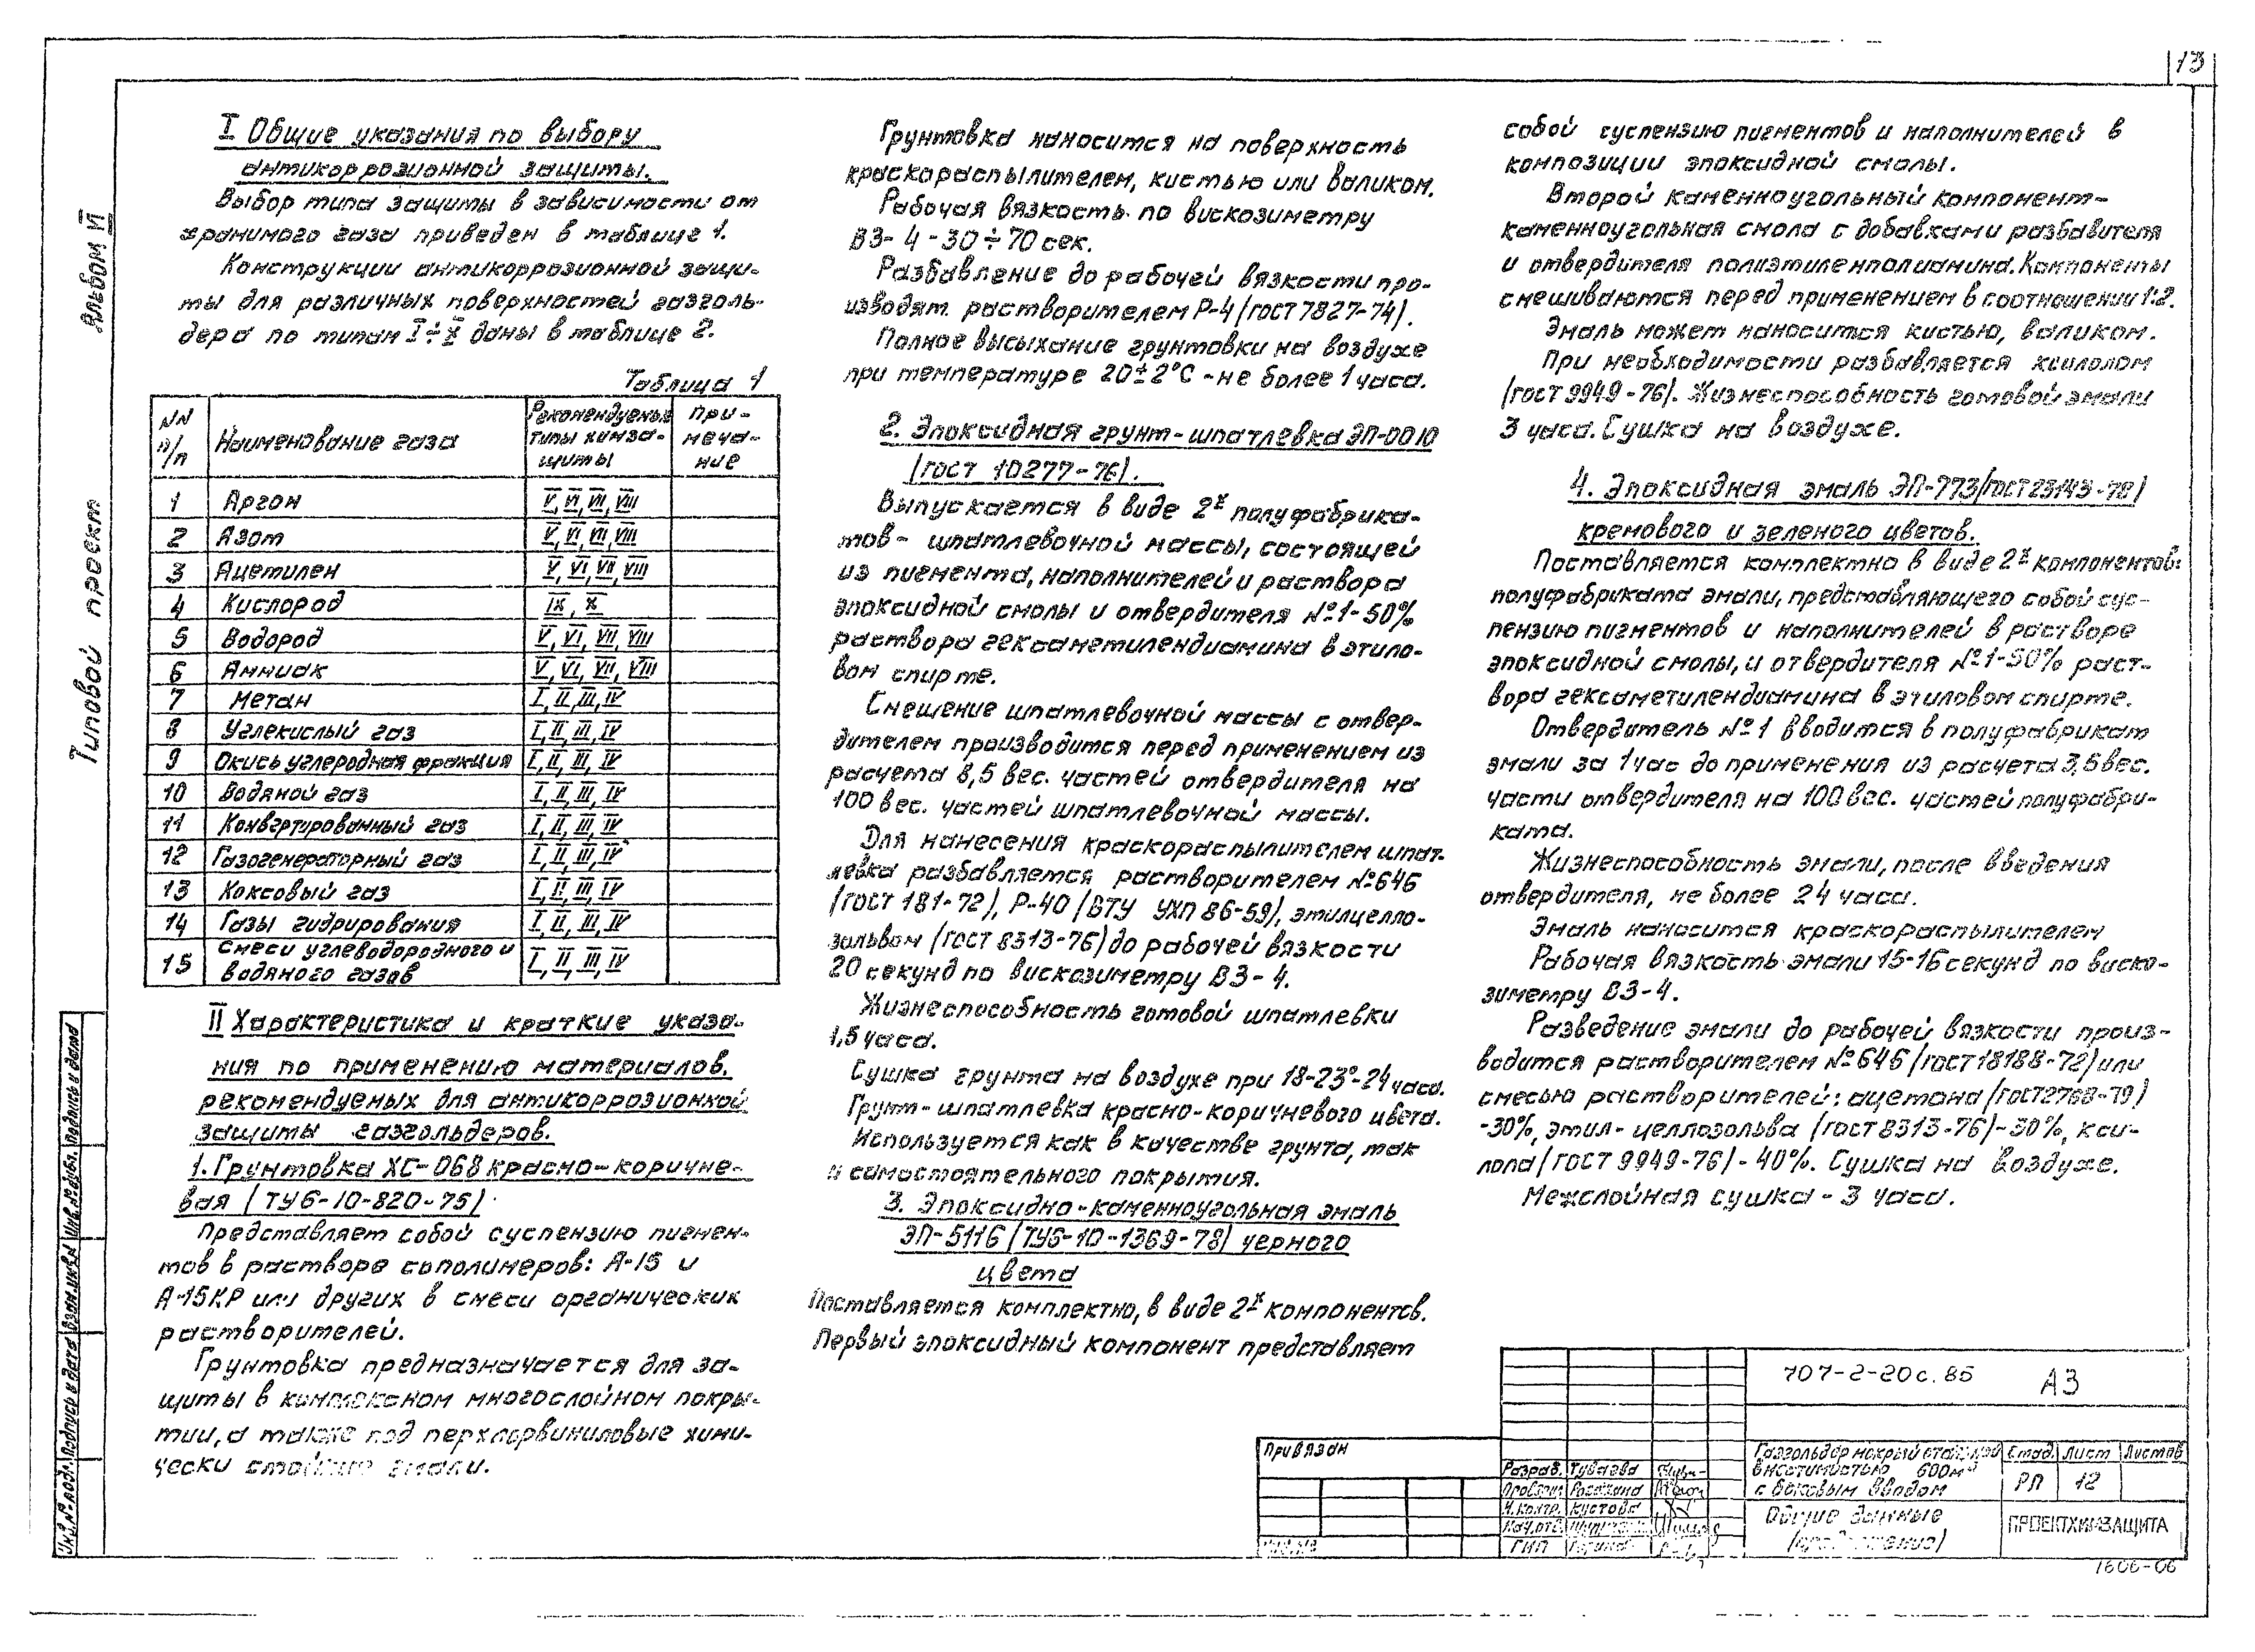 13
Альбом VI
Типовой проект
I Общие указания по выбору
антикоррозионной защиты.
Выбор типа защиты в зависимости от
хранимого газа приведен в таблице 1.
Конструкции антикоррозионной защи-
ты для различных поверхностей газголь-
дера по типам I÷X даны в таблице 2.
Таблица 1
NN п/п | Наименование газа | Рекомендуемые типы химза-щиты | При-меча-ние
1 Аргон V, VI, VII, VIII
2 Азот V, VI, VII, VIII
3 Ацетилен V, VI, VII, VIII
4 Кислород IX, X
5 Водород V, VI, VII, VIII
6 Аммиак V, VI, VII, VIII
7 Метан I, II, III, IV
8 Углекислый газ I, II, III, IV
9 Окись углеродная фракция I, II, III, IV
10 Водяной газ I, II, III, IV
11 Конвертированный газ I, II, III, IV
12 Газогенераторный газ I, II, III, IV
13 Коксовый газ I, II, III, IV
14 Газы гидрирования I, II, III, IV
15 смеси углеводородного и водяного газов I, II, III, IV
II Характеристика и краткие указа-
ния по применению материалов,
рекомендуемых для антикоррозионной
защиты газгольдеров.
1. Грунтовка ХС-068 красно-коричне-
вая (ТУ6-10-820-75)
Представляет собой суспензию пигмен-
тов в растворе сополимеров: А-15 и
А-15КР или других в смеси органических
растворителей.
Грунтовка предназначается для за-
щиты в комплексном многослойном покры-
тии, а также под перхлорвиниловые хими-
чески стойкие эмали.
Грунтовка наносится на поверхность
краскораспылителем, кистью или валиком.
Рабочая вязкость по вискозиметру
ВЗ-4-30÷70 сек.
Разбавление до рабочей вязкости про-
изводят растворителем Р-4 (ГОСТ 7827-74).
Полное высыхание грунтовки на воздухе
при температуре 20±2°С - не более 1 часа.
2. Эпоксидная грунт-шпатлевка ЭП-0010
(ГОСТ 10277-76).
Выпускается в виде 2х полуфабрика-
тов - шпатлевочной массы, состоящей
из пигмента, наполнителей и раствора
эпоксидной смолы и отвердителя №1-50%
раствора гексаметилендиамина в этило-
вом спирте.
Смешение шпатлевочной массы с отвер-
дителем производится перед применением из
расчета 8,5 вес. частей отвердителя на
100 вес. частей шпатлевочной массы.
Для нанесения краскораспылителем шпат-
левка разбавляется растворителем №646
(ГОСТ 181-72), Р-40 (ВТУ УХП 86-59), этилцелло-
зольвом (ГОСТ 8313-76) до рабочей вязкости
20 секунд по вискозиметру ВЗ-4.
Жизнеспособность готовой шпатлевки
1,5 часа.
Сушка грунта на воздухе при 18-23°-24 часа.
Грунт-шпатлевка красно-коричневого цвета.
Используется как в качестве грунта, так
и самостоятельного покрытия.
3. Эпоксидно-каменноугольная эмаль
ЭП-5116 (ТУ6-10-1369-78) черного
цвета
Поставляется комплектно, в виде 2х компонентов.
Первый эпоксидный компонент представляет
собой суспензию пигментов и наполнителей в
композиции эпоксидной смолы.
Второй каменноугольный компонент-
каменноугольная смола с добавками разбавителя
и отвердителя полиэтиленполиамина. Компоненты
смешиваются перед применением в соотношении 1:2.
Эмаль может наносится кистью, валиком.
При необходимости разбавляется ксилолом
(ГОСТ 9949-76). Жизнеспособность готовой эмали
3 часа. Сушка на воздухе.
4. Эпоксидная эмаль ЭП-773 (ГОСТ 23143-78)
кремового и зеленого цветов.
Поставляется комплектно в виде 2х компонентов:
полуфабриката эмали, представляющего собой сус-
пензию пигментов и наполнителей в растворе
эпоксидной смолы, и отвердителя №1-50% раст-
вора гексаметилендиамина в этиловом спирте.
Отвердитель №1 вводится в полуфабрикат
эмали за 1 час до применения из расчета 3,5 вес.
части отвердителя на 100 вес. частей полуфабри-
ката.
Жизнеспособность эмали, после введения
отвердителя, не более 24 часа.
Эмаль наносится краскораспылителем
Рабочая вязкость эмали 15-16 секунд по виско-
зиметру ВЗ-4.
Разведение эмали до рабочей вязкости произ-
водится растворителем №646 (ГОСТ 18188-72) или
смесью растворителей: ацетона (ГОСТ 2768-79)
-30%, этил-целлозольва (ГОСТ 8313-76)-30%, кси-
лола (ГОСТ 9949-76)-40%. Сушка на воздухе.
Межслойная сушка - 3 часа.
Инв.№ подл. Подпись и дата Взам.инв.N Инв.№ дубл. Подпись и дата
Привязан
707-2-20с.85 А3
Разраб.
Н.контр. Кустова
Нач.отд.
ГИП
Газгольдер мокрый стальной
вместимостью 600м³
с боковым вводом
Стад. Лист Листов
РП 12
Общие данные
(продолжение)
ПРОЕКТХИМЗАЩИТА
1606-06